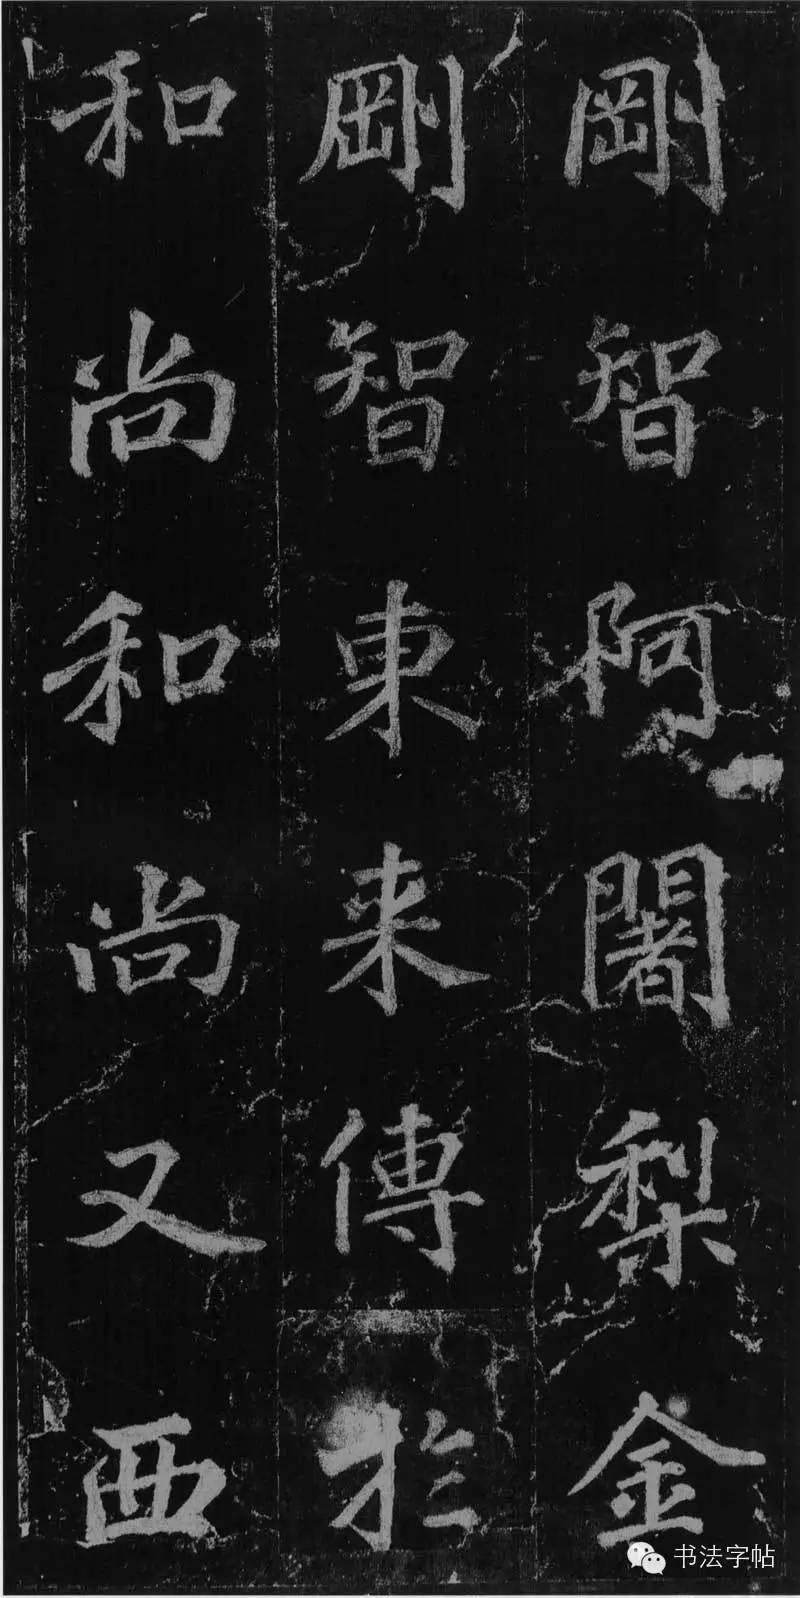 剛智阿闍梨金
剛智東来傳於
和尚和尚又西
书法字帖